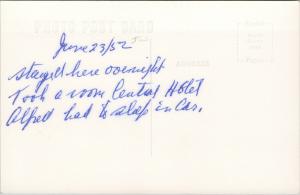 PHOTO POST CARD
June 23/52
stayed here overnight
Took a room Central Hotel
Alfred had to sleep in Car.
ADDRESS